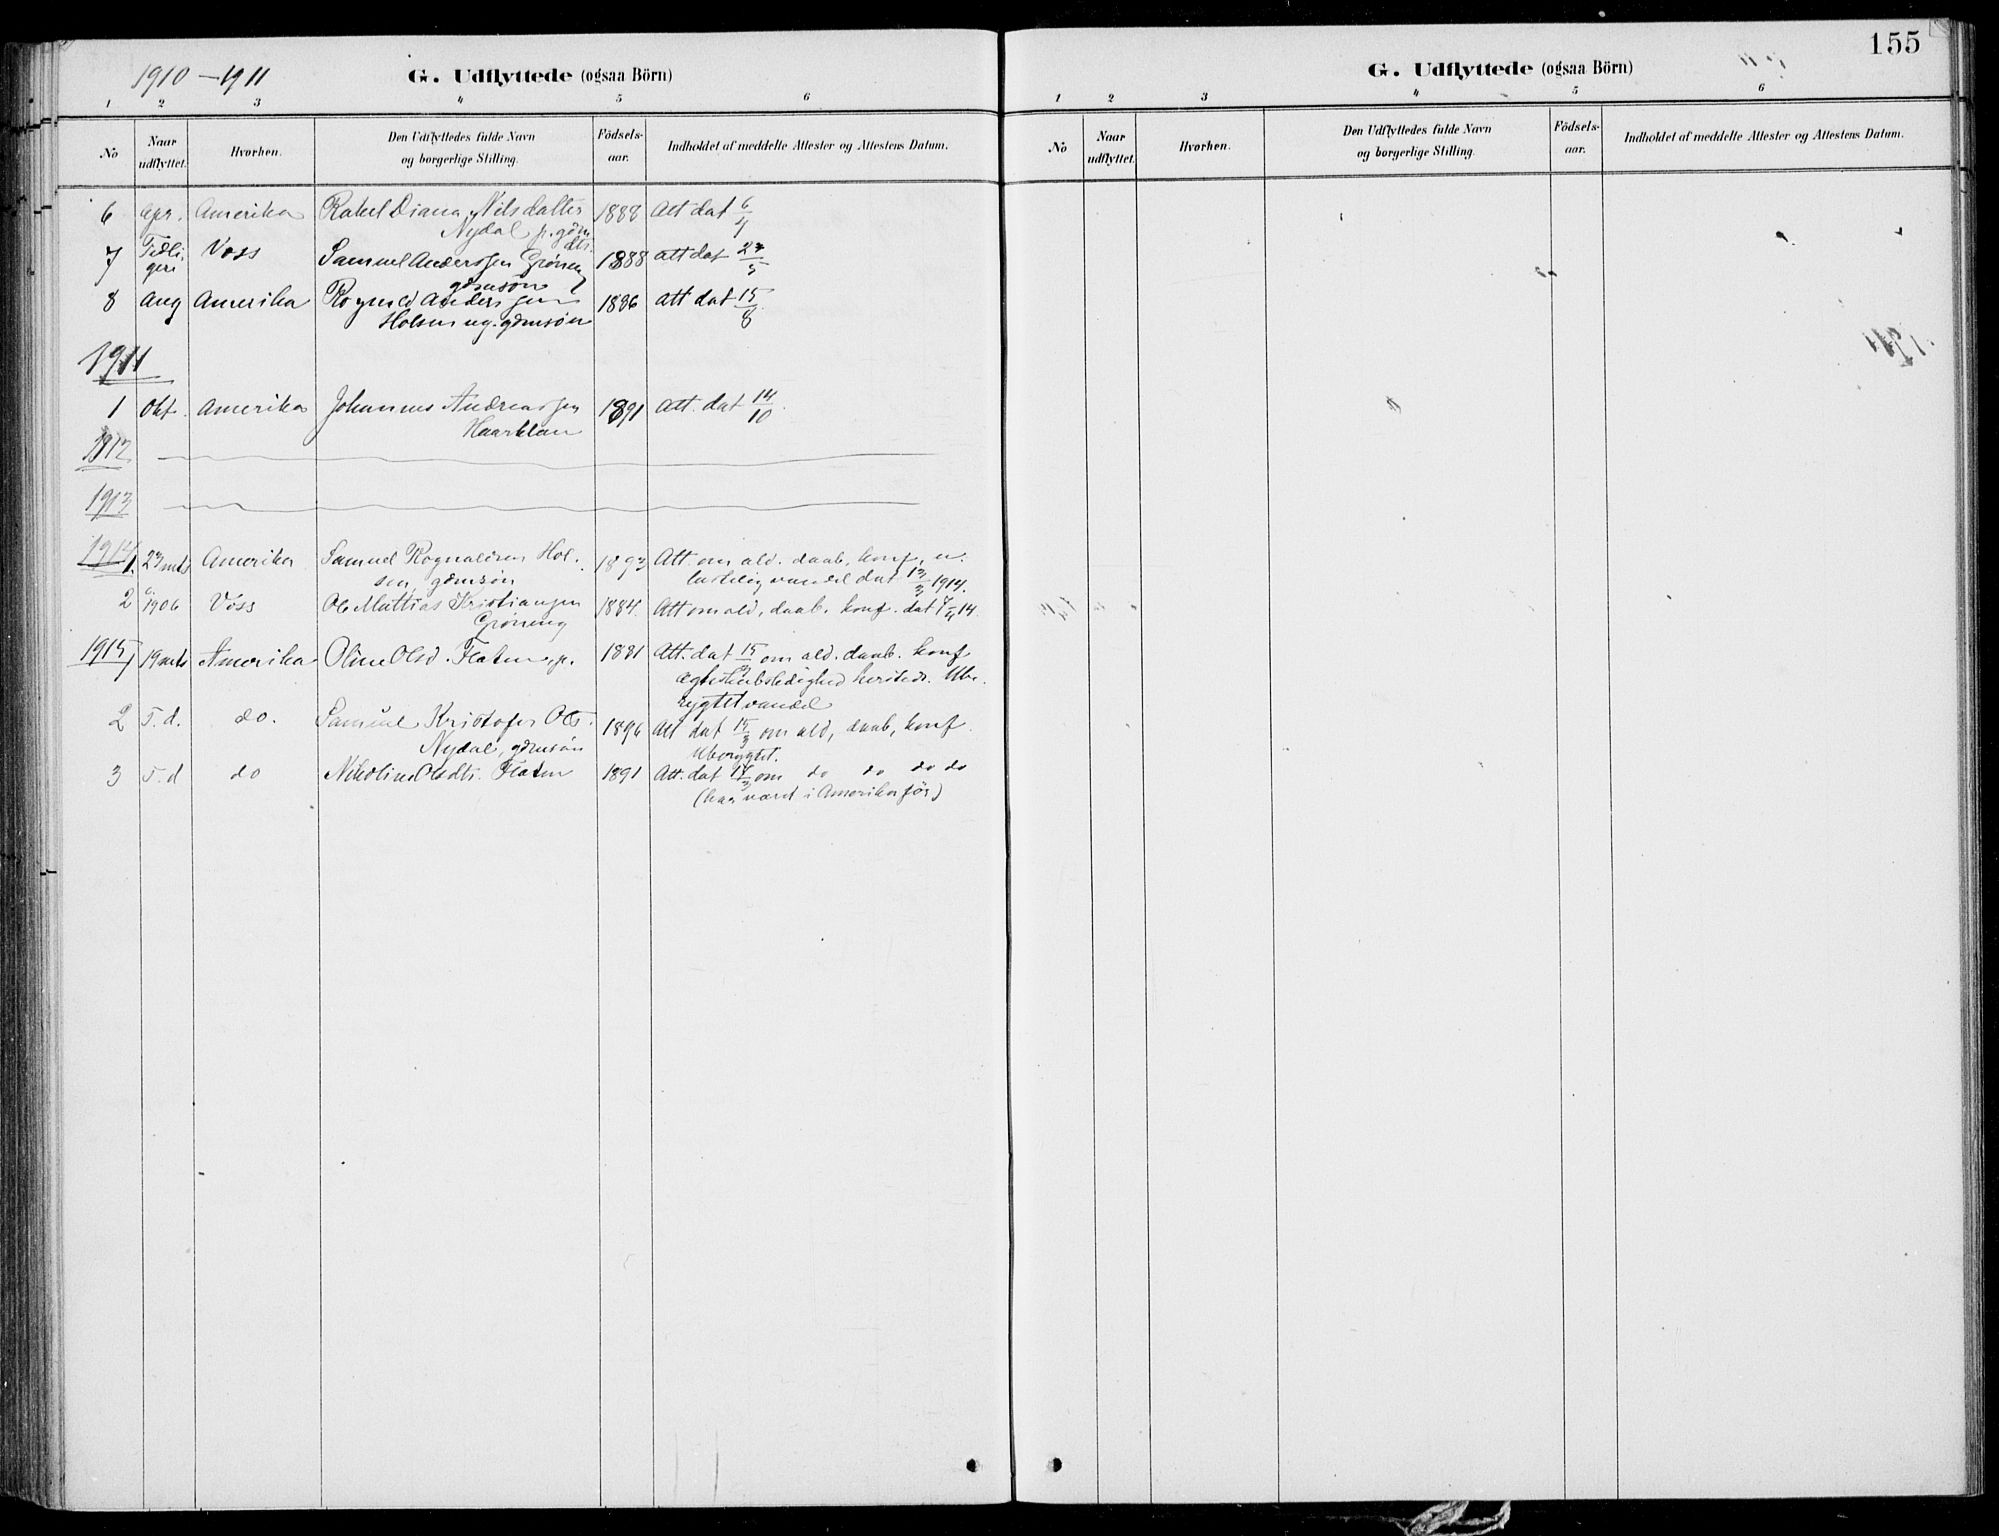 1910 – 1911
G. Udflyttede (ogsaa Börn)
1 2 3 4 5 6
No
Naar udflyttet.
Hvorhen.
Den Udflyttedes fulde Navn og borgerlige Stilling.
Födsels-aar.
Indholdet af meddelte Attester og Attestens Datum.
6 Apr. Amerika Rakel Diana Nilsdatter 1888 Att dat 6/4
Nydal p. gdm dtr.
7 Tidli geri Voss Samuel Anderssen Gröning 1888 att dat 27/5
gdmsön
8 Aug Amerika Rognald Anderssen 1886 att dat 15/8
Holsen ug. gdmsön
1911
1 Okt. Amerika Johannes Andreassen 1891 Att. dat 14/10.
Haarklau
1912
1913
1914
1. 23 mts Amerika Samuel Rognaldsen Hol- 1893 Att. om ald. daab, konf. u.
sen, gdmsön lastelig vandel dat 13/3 1914.
2 i 1906 Voss Ole Mattias Kristiansen 1884. Att om ald, daab. konf. dat 4/4 14.
Gröning
1915
1 19 mts Amerika Oline Olsd. Flaten, p. 1881 Att. dat 15/3 om ald. daab. konf
ægteskabsledighed hersteds. Ube-
rygtet vandel
2 S. d. do. Samuel Kristofer Ols. 1896 Att dat 15/3 om ald, daab, konf.
Nydal, gdmsön Uberygtet.
3 S. d do Nikoline Olsdtr. Flaten 1891 Att. dat 15/3 om do do do do
(har været i Amerika för)
155
G. Udflyttede (ogsaa Börn)
1 2 3 4 5 6
No
Naar udflyttet.
Hvorhen.
Den Udflyttedes fulde Navn og borgerlige Stilling.
Födsels-aar.
Indholdet af meddelte Attester og Attestens Datum.